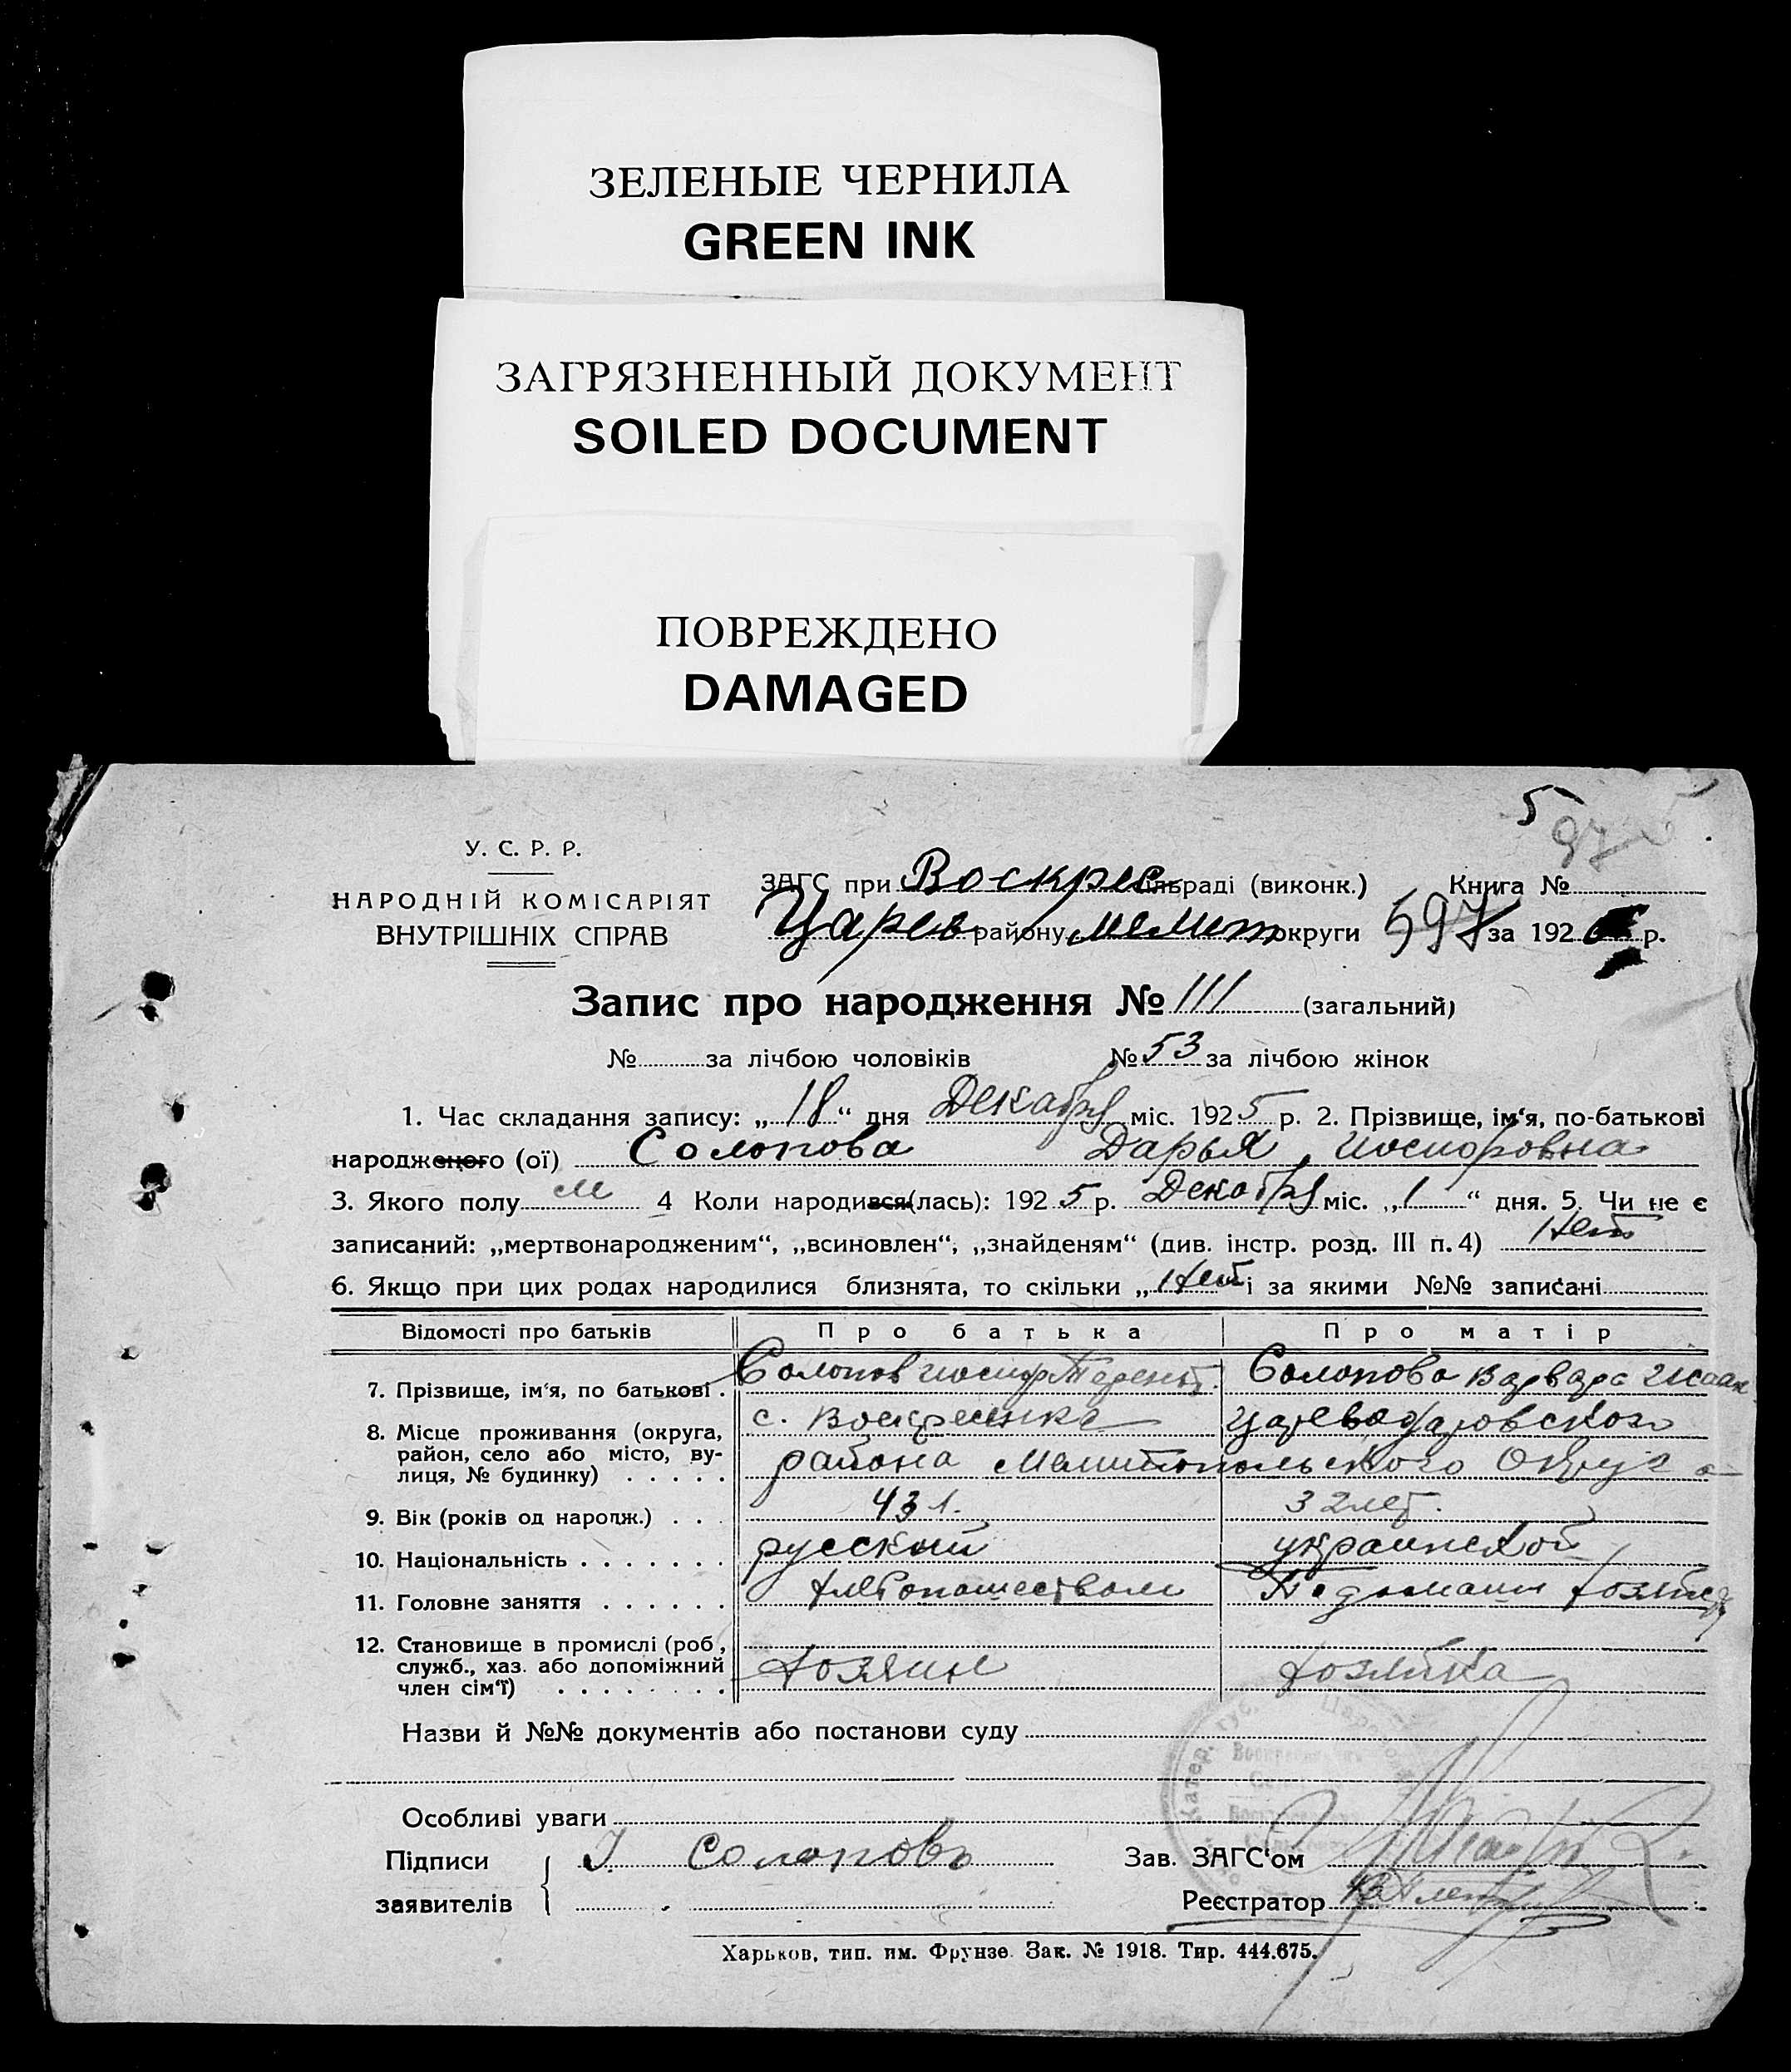 ЗЕЛЕНЫЕ ЧЕРНИЛА
GREEN INK
ЗАГРЯЗНЕННЫЙ ДОКУМЕНТ
SOILED DOCUMENT
ПОВРЕЖДЕНО
DAMAGED
5
97
У. С. Р. Р.
НАРОДНІЙ КОМІСАРІЯТ
ВНУТРІШНІХ СПРАВ
ЗАГС при Воскрес сільраді (виконк.) Книга №
Царев району Мелит округи 597 за 192 р.
Запис про народження № 111 (загальний)
№ за лічбою чоловіків № 53 за лічбою жінок
1. Час складання запису: „18“ дня Декабря міс. 1925 р. 2. Прізвище, ім‘я, по-батькові
народженого (ої) Солопова Дарья Иосифовна
3. Якого полу 4 Коли народився(лась): 1925 р. Декабря міс. „1“ дня. 5. Чи не є
записаний: „мертвонародженим“, „всиновлен“, „знайденям“ (див. інстр. розд. III п. 4) Нет
6. Якщо при цих родах народилися близнята, то скільки „Нет і за якими №№ записані
Відомості про батьків Про батька Про матір
7. Прізвище, ім‘я, по батькові. Солопов Иосиф Терент. Солопова Варвара Исаак
8. Місце проживання (округа, район, село або місто, вулиця, № будинку) с. Воскресенка Цареводаровского
района Мелитопольского Округа
9. Вік (років од народж.) 43 л. 32 лет.
10. Національність русский украинской
11. Головне заняття хлебопашеством По домашн хозяйст
12. Становище в промислі (роб., служб., хаз. або допоміжний член сім‘ї) хозяин хозяйка
Назви й №№ документів або постанови суду
Особливі уваги
Підписи заявителів И Солоповъ
Зав. ЗАГС‘ом
Реєстратор
Харьков, тип. им. Фрунзе. Зак. № 1918. Тир. 444.675.